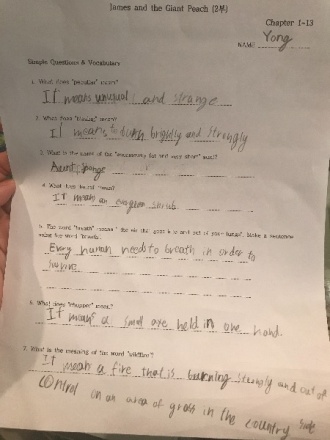 James and the Giant Peach (2부)
Chapter 1-13
NAME Yong
Simple Questions & Vocabulary
1. What does "peculiar" mean?
It means unusual and strange
2. What does "blazing" mean?
It means to burn brightly and strongly
3. What is the name of the "enormously fat and very short" aunt?
Aunt Sponge
4. What does laurel mean?
IT mean an evergreen shrub
5. The word "breath" means the air that goes in and out of your lungs. Make a sentence using the word "breath".
Every human need to breath in order to
survive
6. What does "chopper" mean?
It means a small axe held in one hand.
7. What is the meaning of the word "wildfire"?
It mean a fire that is burning strongly and out of
control on an area of grass in the country side